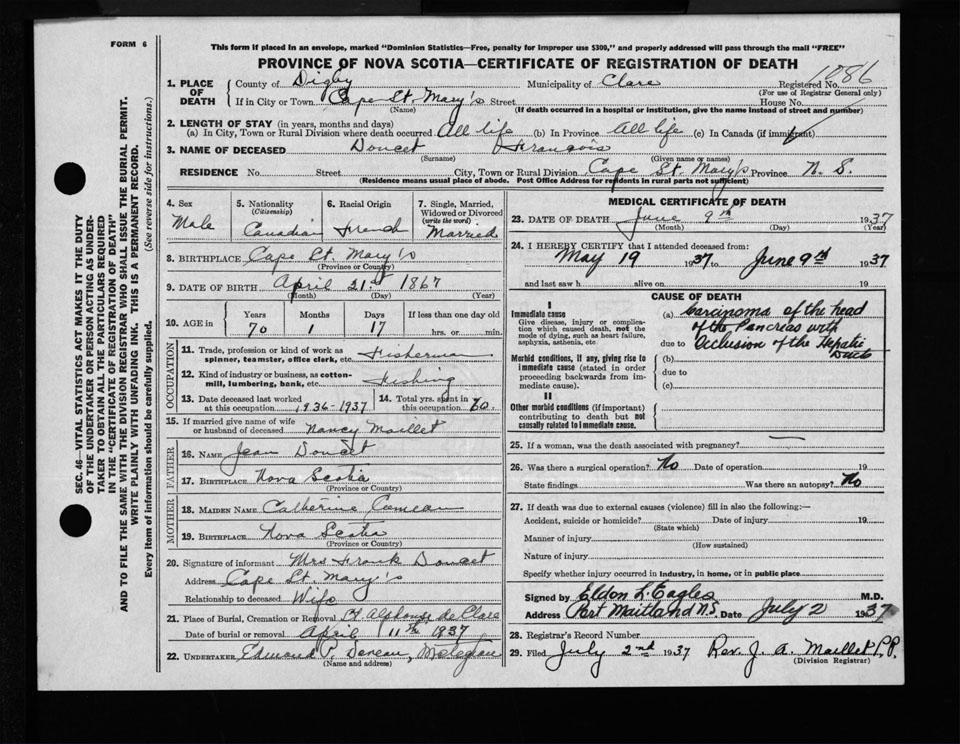 FORM 6
This form if placed in an envelope, marked "Dominion Statistics—Free, penalty for improper use $300," and properly addressed will pass through the mail "FREE"
PROVINCE OF NOVA SCOTIA—CERTIFICATE OF REGISTRATION OF DEATH
SEC. 46—VITAL STATISTICS ACT MAKES IT THE DUTY
OF THE UNDERTAKER OR PERSON ACTING AS UNDER-
TAKER TO OBTAIN ALL THE PARTICULARS REQUIRED
IN THE "CERTIFICATE OF REGISTRATION OF DEATH"
AND TO FILE THE SAME WITH THE DIVISION REGISTRAR WHO SHALL ISSUE THE BURIAL PERMIT.
WRITE PLAINLY WITH UNFADING INK. THIS IS A PERMANENT RECORD.
Every item of information should be carefully supplied. (See reverse side for instructions.)
1. PLACE OF DEATH County of Digby Municipality of Clare Registered No. 1086
(For use of Registrar General only)
If in City or Town Cape St. Mary's Street House No.
(Name) (If death occurred in a hospital or institution, give the name instead of street and number)
2. LENGTH OF STAY (in years, months and days)
(a) In City, Town or Rural Division where death occurred All life (b) In Province All life (c) In Canada (if immigrant)
3. NAME OF DECEASED Doucet François
(Surname) (Given name or names)
RESIDENCE No. Street City, Town or Rural Division Cape St. Mary's Province N. S.
(Residence means usual place of abode. Post Office Address for residents in rural parts not sufficient)
4. Sex Male
5. Nationality (Citizenship) Canadian
6. Racial Origin French
7. Single, Married, Widowed or Divorced (write the word) Married
8. BIRTHPLACE Cape St. Mary's
(Province or Country)
9. DATE OF BIRTH April 21st 1867
(Month) (Day) (Year)
10. AGE in Years Months Days If less than one day old
70 1 17 hrs. or min.
OCCUPATION
11. Trade, profession or kind of work as spinner, teamster, office clerk, etc. Fisherman
12. Kind of industry or business, as cotton-mill, lumbering, bank, etc. Fishing
13. Date deceased last worked at this occupation 1936-1937
14. Total yrs. spent in this occupation 60
15. If married give name of wife or husband of deceased Nancy Maillet
FATHER
16. NAME Jean Doucet
17. BIRTHPLACE Nova Scotia
(Province or Country)
MOTHER
18. MAIDEN NAME Catherine Comeau
19. BIRTHPLACE Nova Scotia
(Province or Country)
20. Signature of informant Mrs Frank Doucet
Address Cape St. Mary's
Relationship to deceased Wife
21. Place of Burial, Cremation or Removal St Alphonse de Clare
Date of burial or removal April 11th 1937
22. UNDERTAKER Edmond P. Deveau, Meteghan
(Name and address)
MEDICAL CERTIFICATE OF DEATH
23. DATE OF DEATH June 9th 1937
(Month) (Day) (Year)
24. I HEREBY CERTIFY that I attended deceased from:
May 19 1937 to June 9th 1937
and last saw h alive on 19
CAUSE OF DEATH
I
Immediate cause
Give disease, injury or complication which caused death, not the mode of dying, such as heart failure, asphyxia, asthenia, etc
(a) Carcinoma of the head
of the Pancreas with
due to Occlusion of the Hepatic
Ducts
Morbid conditions, if any, giving rise to immediate cause (stated in order proceeding backwards from immediate cause).
(b)
due to
(c)
II
Other morbid conditions (if important) contributing to death but not causally related to immediate cause.
25. If a woman, was the death associated with pregnancy? —
26. Was there a surgical operation? No Date of operation 19
State findings Was there an autopsy? No
27. If death was due to external causes (violence) fill in also the following:—
Accident, suicide or homicide? Date of injury 19
(State which)
Manner of injury
(How sustained)
Nature of injury
Specify whether injury occurred in industry, in home, or in public place
Signed by Eldon L. Eagles M.D.
Address Port Maitland N.S. Date July 2 1937
28. Registrar's Record Number
29. Filed July 2nd 1937 Rev. J. A. Maillet P.P.
(Division Registrar)